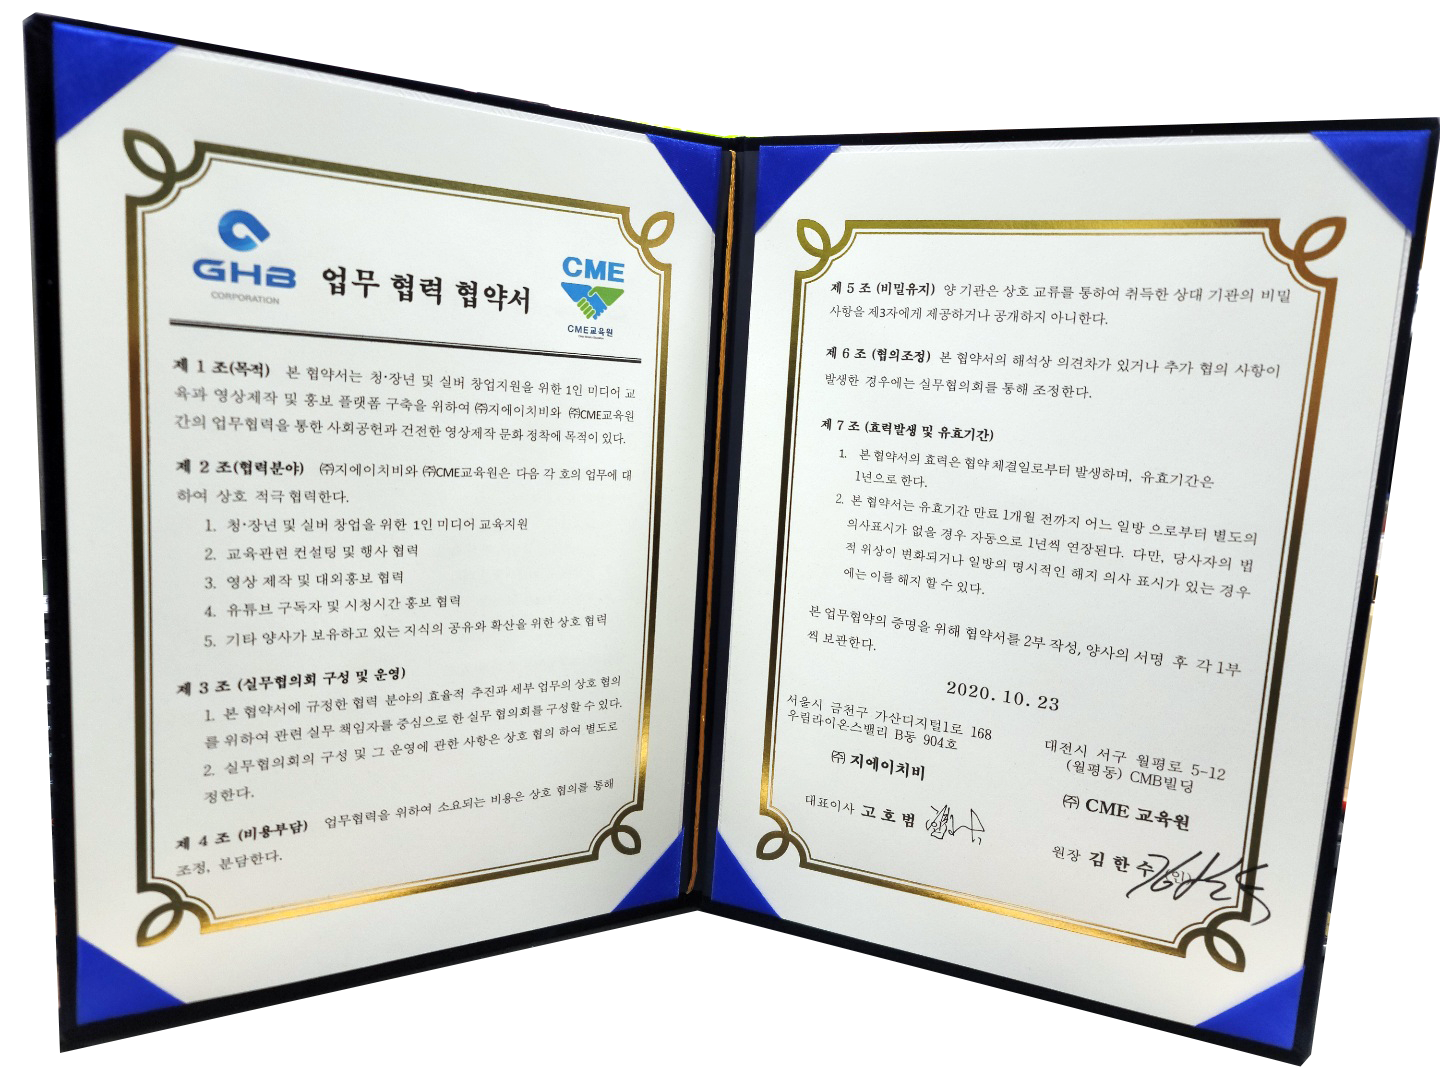 GHB
CORPORATION
업무 협력 협약서
CME
CME교육원
제 1 조(목적) 본 협약서는 청·장년 및 실버 창업지원을 위한 1인 미디어 교
육과 영상제작 및 홍보 플랫폼 구축을 위하여 ㈜지에이치비와 ㈜CME교육원
간의 업무협력을 통한 사회공헌과 건전한 영상제작 문화 정착에 목적이 있다.
제 2 조(협력분야) ㈜지에이치비와 ㈜CME교육원은 다음 각 호의 업무에 대
하여 상호 적극 협력한다.
1. 청·장년 및 실버 창업을 위한 1인 미디어 교육지원
2. 교육관련 컨설팅 및 행사 협력
3. 영상 제작 및 대외홍보 협력
4. 유튜브 구독자 및 시청시간 홍보 협력
5. 기타 양사가 보유하고 있는 지식의 공유와 확산을 위한 상호 협력
제 3 조 (실무협의회 구성 및 운영)
1. 본 협약서에 규정한 협력 분야의 효율적 추진과 세부 업무의 상호 협의
를 위하여 관련 실무 책임자를 중심으로 한 실무 협의회를 구성할 수 있다.
2. 실무협의회의 구성 및 그 운영에 관한 사항은 상호 협의 하여 별도로
정한다.
제 4 조 (비용부담) 업무협력을 위하여 소요되는 비용은 상호 협의를 통해
조정, 분담한다.
제 5 조 (비밀유지) 양 기관은 상호 교류를 통하여 취득한 상대 기관의 비밀
사항을 제3자에게 제공하거나 공개하지 아니한다.
제 6 조 (협의조정) 본 협약서의 해석상 의견차가 있거나 추가 협의 사항이
발생한 경우에는 실무협의회를 통해 조정한다.
제 7 조 (효력발생 및 유효기간)
1. 본 협약서의 효력은 협약 체결일로부터 발생하며, 유효기간은
1년으로 한다.
2. 본 협약서는 유효기간 만료 1개월 전까지 어느 일방 으로부터 별도의
의사표시가 없을 경우 자동으로 1년씩 연장된다. 다만, 당사자의 법
적 위상이 변화되거나 일방의 명시적인 해지 의사 표시가 있는 경우
에는 이를 해지 할 수 있다.
본 업무협약의 증명을 위해 협약서를 2부 작성, 양사의 서명 후 각 1부
씩 보관한다.
2020.10.23
서울시 금천구 가산디지털1로 168
우림라이온스밸리 B동 904호
㈜ 지에이치비
대표이사 고 호 범 (인)
대전시 서구 월평로 5-12
(월평동) CMB빌딩
㈜ CME 교육원
원장 김 한 수 (인)